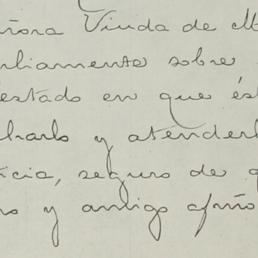 ñora Viuda de M
liamente sobre
estado en que ést
harlo y atenderl
icia, seguro de q
o y amigo afmo